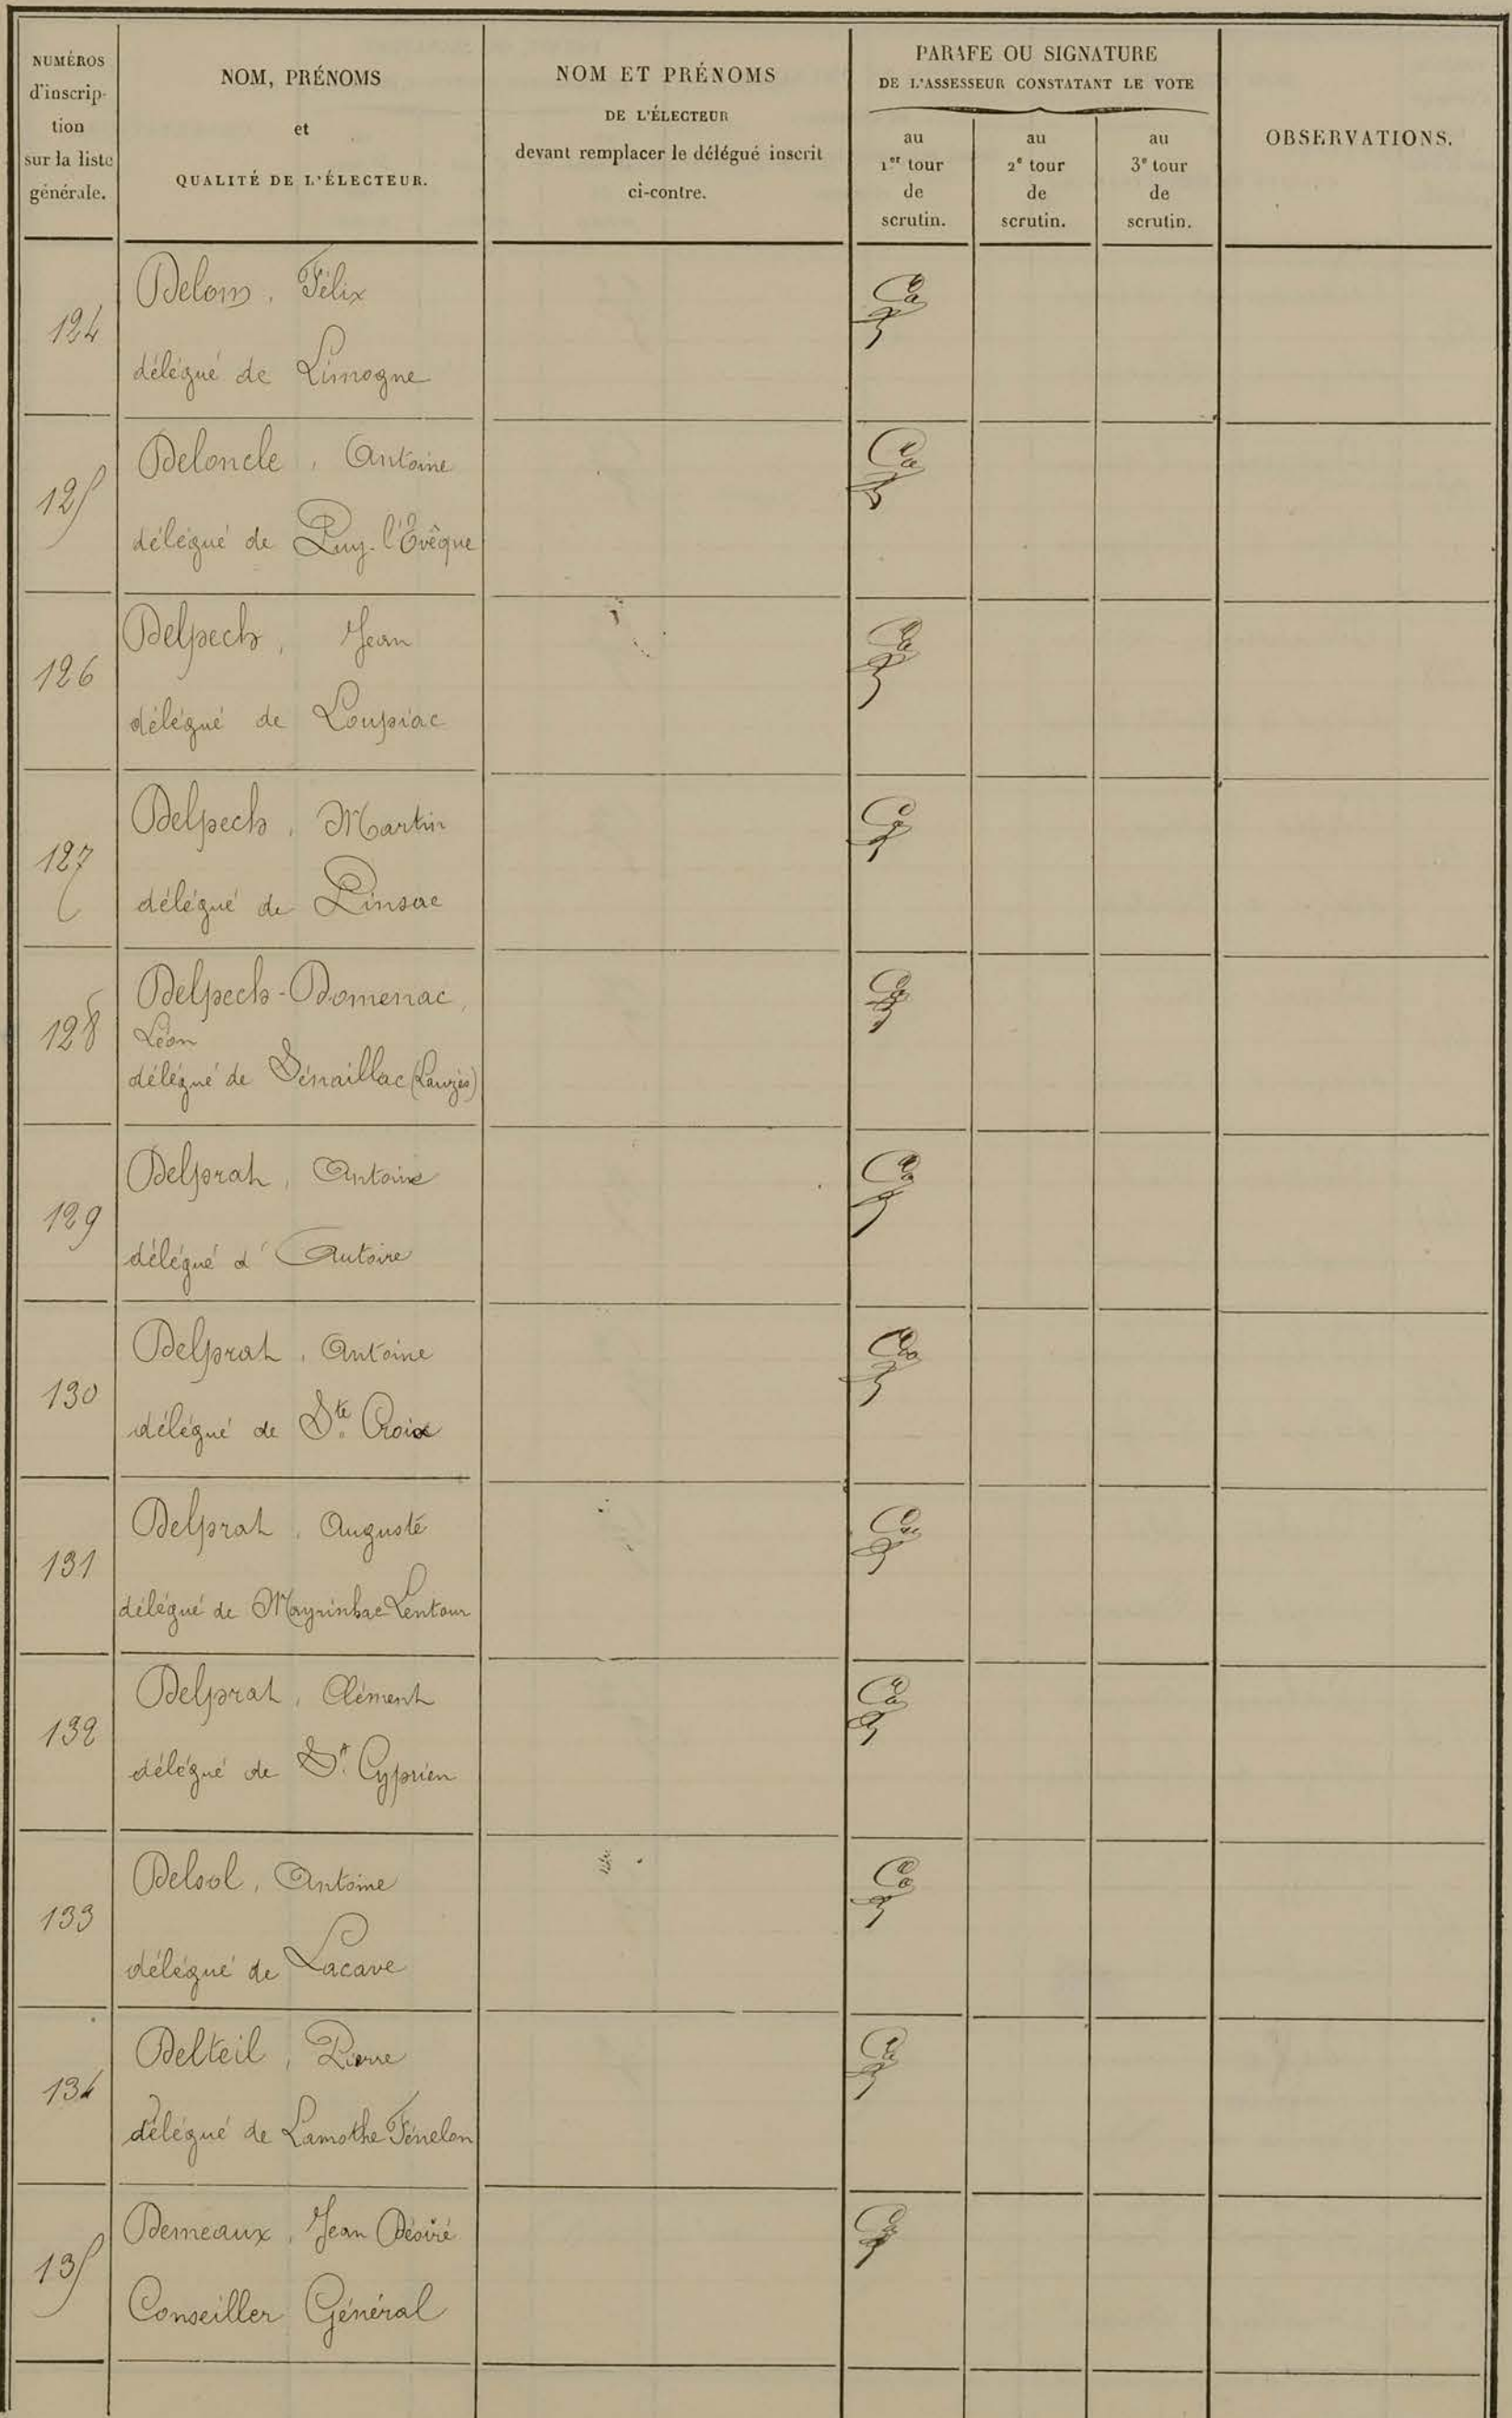 NUMÉROS
d'inscrip-
tion
sur la liste
générale.
NOM, PRÉNOMS
et
QUALITÉ DE L'ÉLECTEUR.
NOM ET PRÉNOMS
DE L'ÉLECTEUR
devant remplacer le délégué inscrit
ci-contre.
PARAFE OU SIGNATURE
DE L'ASSESSEUR CONSTATANT LE VOTE
au
1er tour
de
scrutin.
au
2e tour
de
scrutin.
au
3e tour
de
scrutin.
OBSERVATIONS.
124
Delom, Félix
délégué de Limogne
125
Deloncle, Antoine
délégué de Puy-l'Évêque
126
Delpech, Jean
délégué de Loupiac
127
Delpech, Martin
délégué de Pinsac
128
Delpech-Domenac,
Léon
délégué de Sénaillac (Lauzès)
129
Delprat, Antoine
délégué d'Autoire
130
Delprat, Antoine
délégué de Ste Croix
131
Delprat, Auguste
délégué de Mayrinhac Lentour
132
Delprat, Clément
délégué de St Cyprien
133
Delsol, Antoine
délégué de Lacave
134
Delteil, Pierre
délégué de Lamothe Fénelon
135
Demeaux, Jean Désiré
Conseiller Général